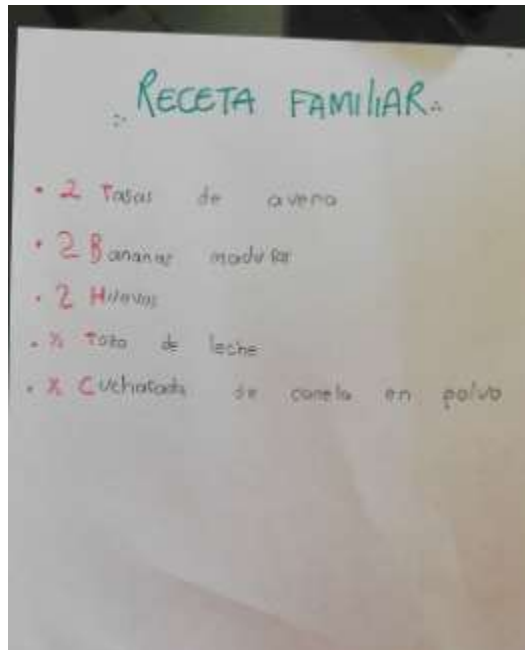 RECETA FAMILIAR
• 2 Tasas de avena
• 2 Bananas maduras
• 2 Huevos
• ½ Taza de leche
• Cucharada de canela en polvo